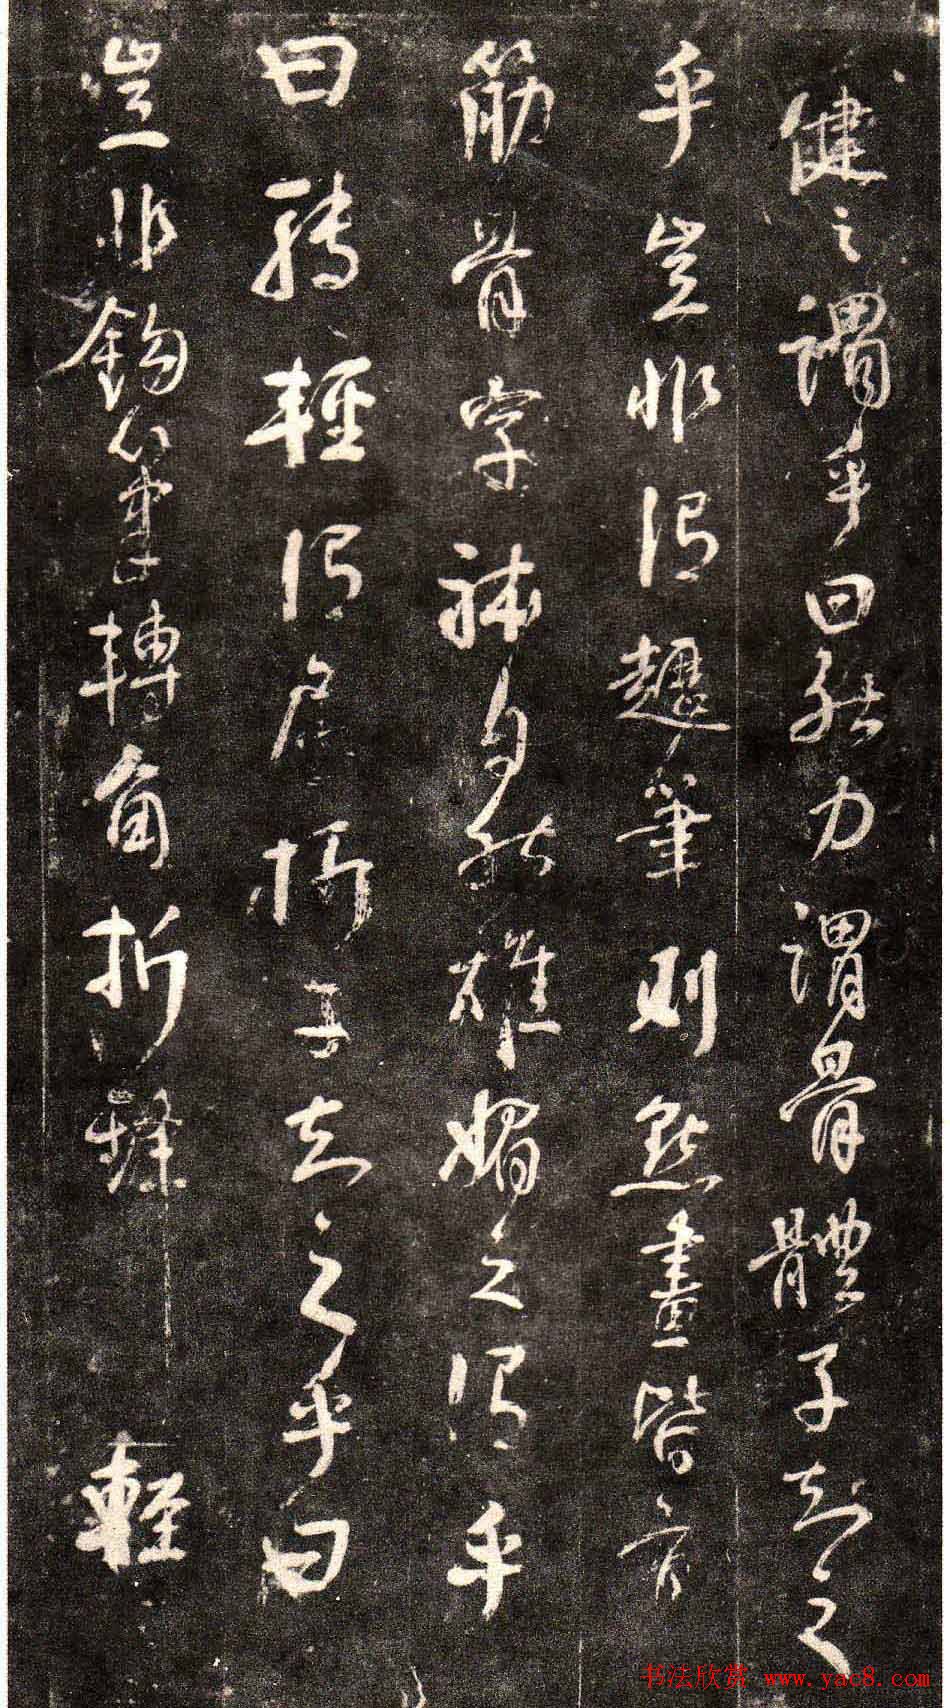 健之謂乎曰然力謂骨體子知之
乎豈非謂趯筆則點畫皆有
筋骨字體自然雄媚之謂乎
曰轉輕謂屈折子知之乎曰
豈非鉤筆轉角折鋒輕
书法欣赏 www.yac8.com